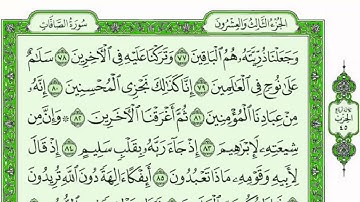 الجزء الثالث والعشرون
سورة الصافات
وَجَعَلْنَا ذُرِّيَّتَهُۥ هُمُ ٱلْبَاقِينَ ٧٧ وَتَرَكْنَا عَلَيْهِ فِى ٱلْءَاخِرِينَ ٧٨ سَلَٰمٌ
عَلَىٰ نُوحٍ فِى ٱلْعَٰلَمِينَ ٧٩ إِنَّا كَذَٰلِكَ نَجْزِى ٱلْمُحْسِنِينَ ٨٠ إِنَّهُۥ
مِنْ عِبَادِنَا ٱلْمُؤْمِنِينَ ٨١ ثُمَّ أَغْرَقْنَا ٱلْءَاخَرِينَ ٨٢ وَإِنَّ مِن
شِيعَتِهِۦ لَإِبْرَٰهِيمَ ٨٣ إِذْ جَآءَ رَبَّهُۥ بِقَلْبٍ سَلِيمٍ ٨٤ إِذْ قَالَ
لِأَبِيهِ وَقَوْمِهِۦ مَاذَا تَعْبُدُونَ ٨٥ أَئِفْكًا ءَالِهَةً دُونَ ٱللَّهِ تُرِيدُونَ
الحزب
٤٥